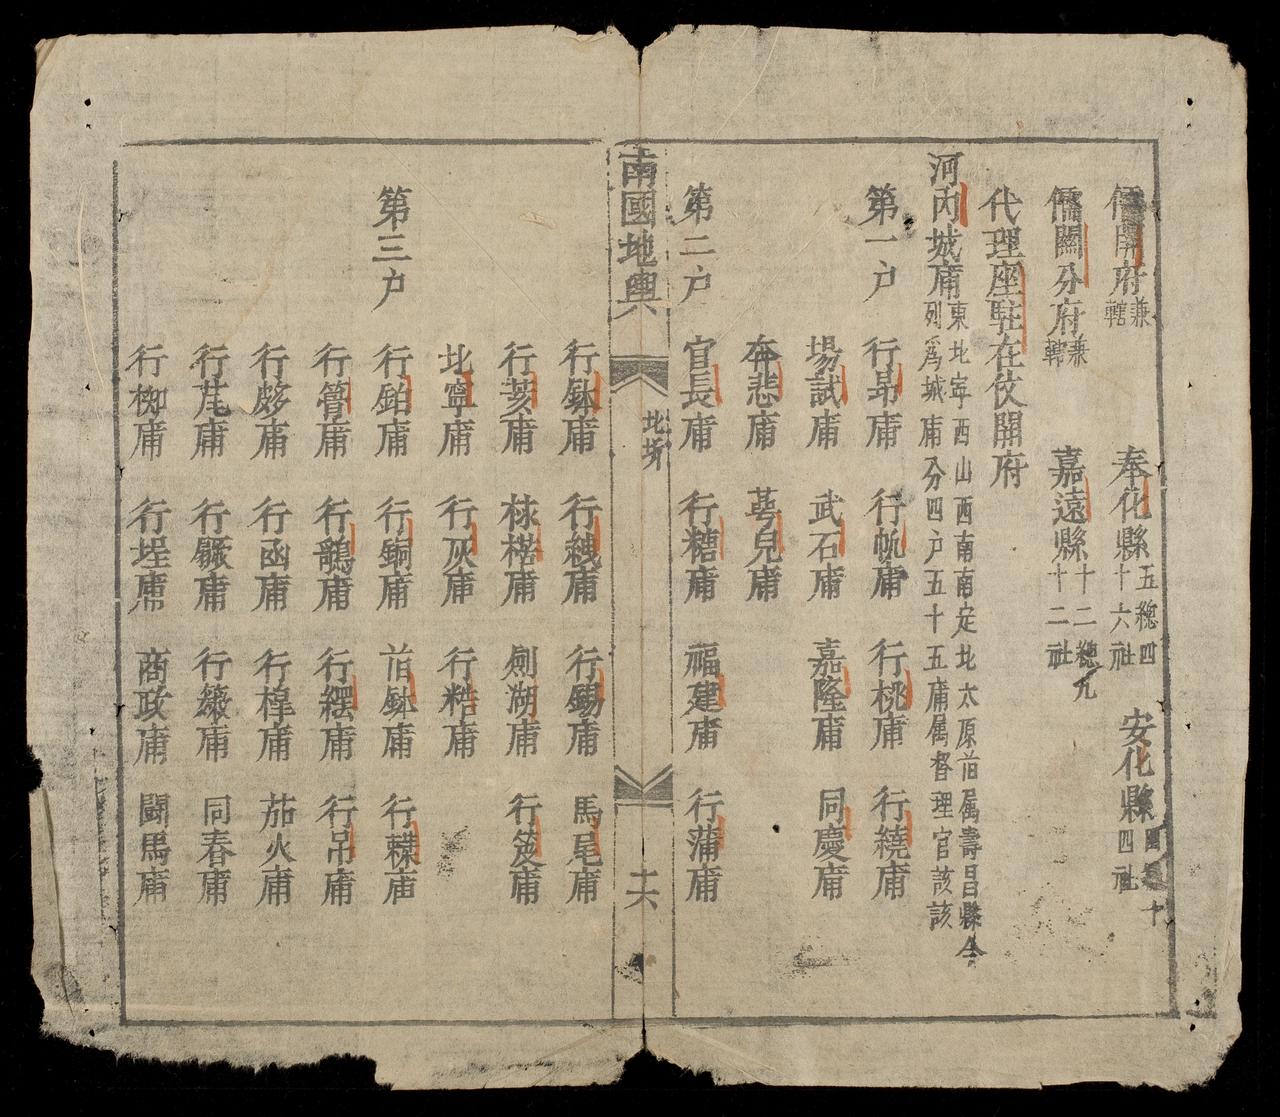 儒關府兼轄 奉化縣五總四十六社 安化縣四總十四社
儒關分府兼轄 嘉遠縣十二總九十二社
代理座駐在仗關府
河內城庯東北寧西山西南南定北太原前属壽昌縣今列爲城庯分四户五十五庯属督理官該該
第一户 行昂庯 行帆庯 行桃庯 行繞庯
場試庯 武石庯 嘉隆庯 同慶庯
奔悲庯 萼兒庯
第二户 官長庯 行糖庯 福建庯 行蒲庯
南國地輿 北圻 十六
行鉢庯 行綫庯 行錫庯 馬尾庯
行荄庯 梂楛庯 劍湖庯 行笺庯
北寧庯 行灰庯 行糙庯
第三户 行鉑庯 行銅庯 前鉢庯 行鞢庯
行簹庯 行鶻庯 行纙庯 行吊庯
行庯 行函庯 行楻庯 茄火庯
行芪庯 行鱖庯 行簸庯 同春庯
行椥庯 行埕庯 商政庯 鬪馬庯